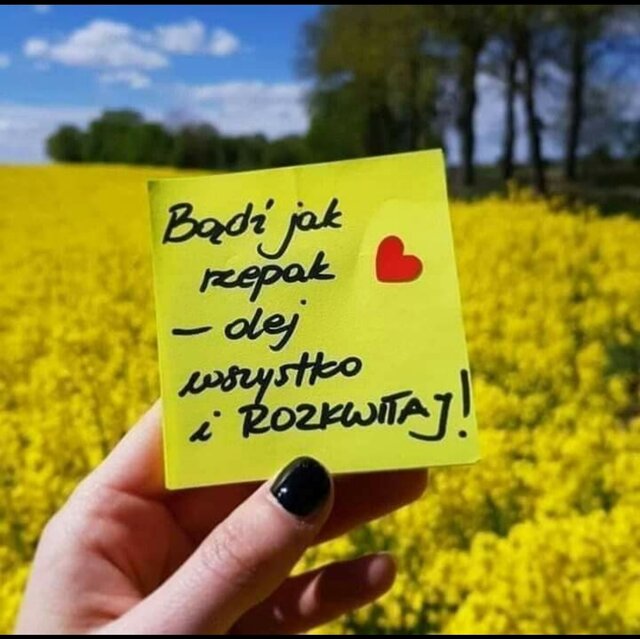 Bądź jak
rzepak
– olej
wszystko
i ROZKWITAJ!